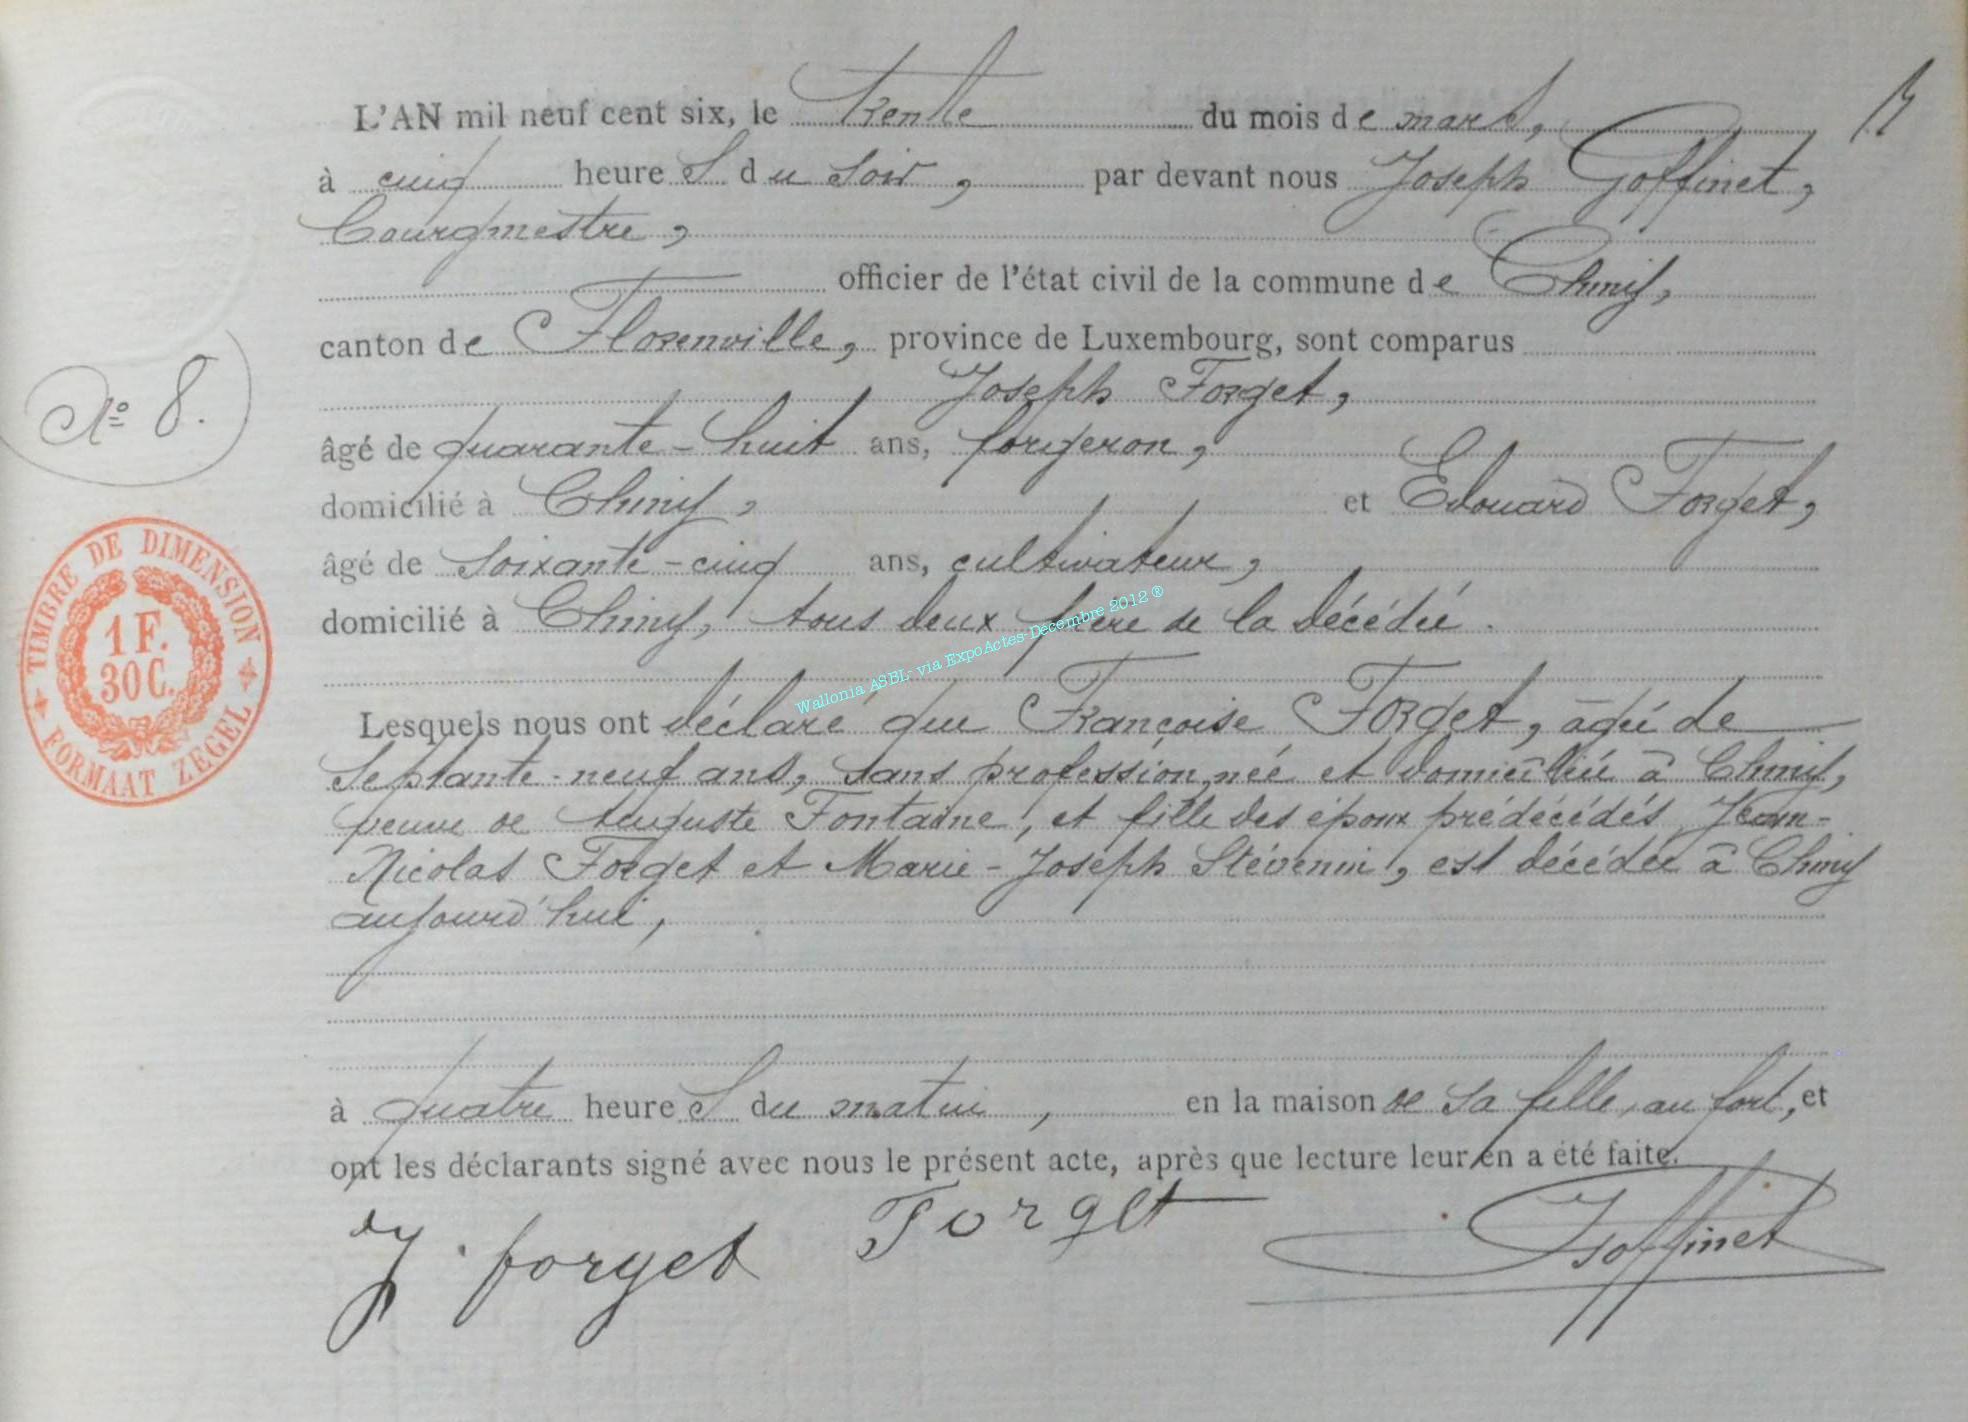 L'AN mil neuf cent six, le trente du mois de mars,
à cinq heureS du soir, par devant nous Joseph Goffinet,
Bourgmestre,
officier de l'état civil de la commune de Chiny,
canton de Florenville, province de Luxembourg, sont comparus
Joseph Forget,
N° 8.
âgé de quarante-huit ans, forgeron,
domicilié à Chiny, et Edouard Forget,
âgé de soixante-cinq ans, cultivateur,
domicilié à Chiny, tous deux frère de la décédée.
TIMBRE DE DIMENSION
1 F.
30 C.
FORMAAT ZEGEL
Wallonia ASBL- via ExpoActes-Décembre 2012 ®
Lesquels nous ont déclaré que Françoise Forget, âgée de
septante-neuf ans, sans profession, née et domiciliée à Chiny,
veuve de Auguste Fontaine, et fille des époux prédécédés Jean-
Nicolas Forget et Marie-Joseph Stévenin, est décédée à Chiny
aujourd'hui,
à quatre heureS du matin, en la maison de sa fille, au fort, et
ont les déclarants signé avec nous le présent acte, après que lecture leur en a été faite.
J. forget Forget Goffinet